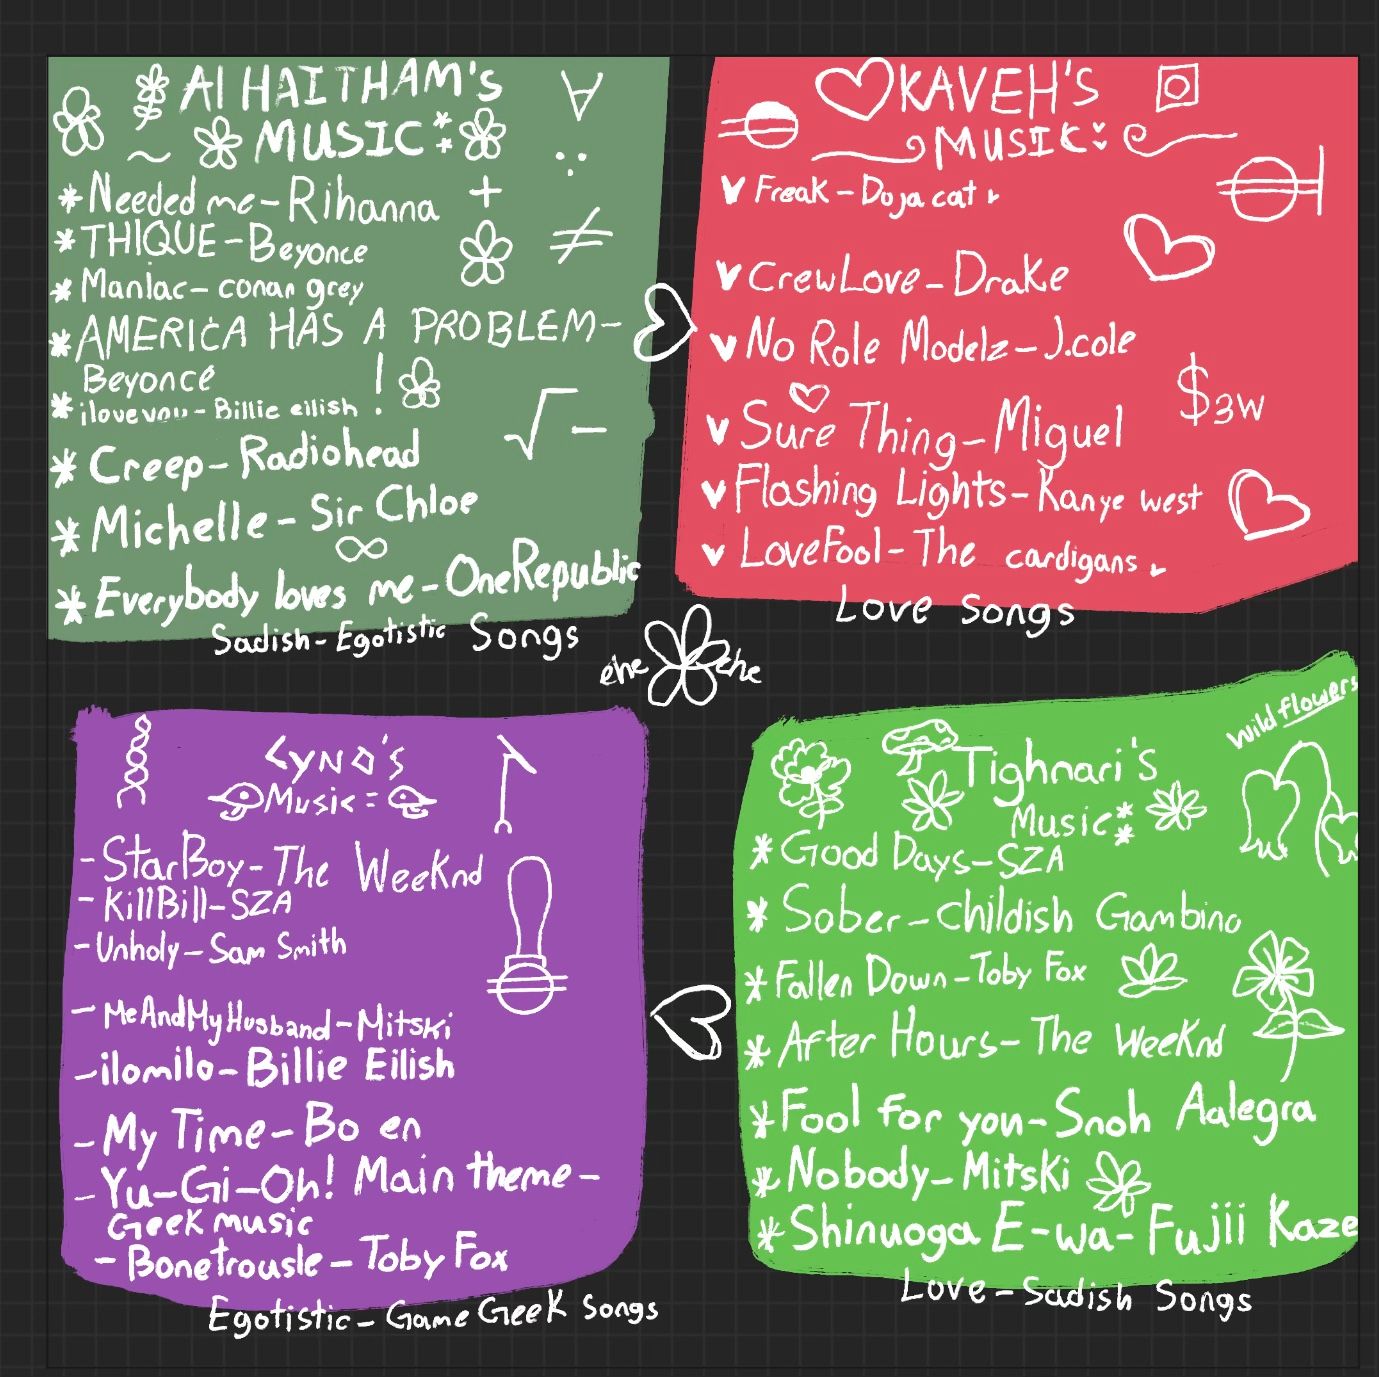 Al HAITHAM's
MUSIC:
Needed me-Rihanna
THIQUE-Beyonce
Maniac-conan grey
AMERICA HAS A PROBLEM-
Beyonce
iloveyou-Billie eilish
Creep-Radiohead
Michelle-Sir Chloe
Everybody loves me-OneRepublic
Sadish-Egotistic Songs
KAVEH'S
MUSIC:
Freak-Doja cat
CrewLove-Drake
No Role Modelz-J.cole
$3W
Sure Thing-Miguel
Flashing Lights-Kanye west
LoveFool-The cardigans
Love songs
ehe ehe
CYNO's
Music:
-StarBoy-The WeeKnd
-KillBill-SZA
-Unholy-Sam Smith
-MeAndMyHusband-Mitski
-ilomilo-Billie Eilish
-My Time-Bo en
-Yu-Gi-Oh! Main theme-
Geek music
-Bonetrousle-Toby Fox
Egotistic-Game Geek Songs
Wild flowers
Tighnari's
Music:
Good Days-SZA
Sober-childish Gambino
Fallen Down-Toby Fox
After Hours-The WeeKnd
Fool for you-Snoh Aalegra
Nobody-Mitski
Shinuoga E-wa-Fujii Kaze
Love-Sadish Songs